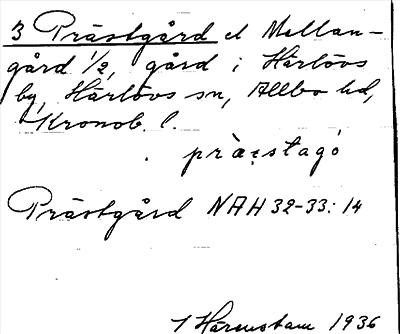 3 Prästgård el Mellan-
gård 1/2, gård i Härlövs
by, Härlövs sn, Allbo hd,
Kronob. l.
pràestagó
Prästgård NAH 32-33: 14
1936